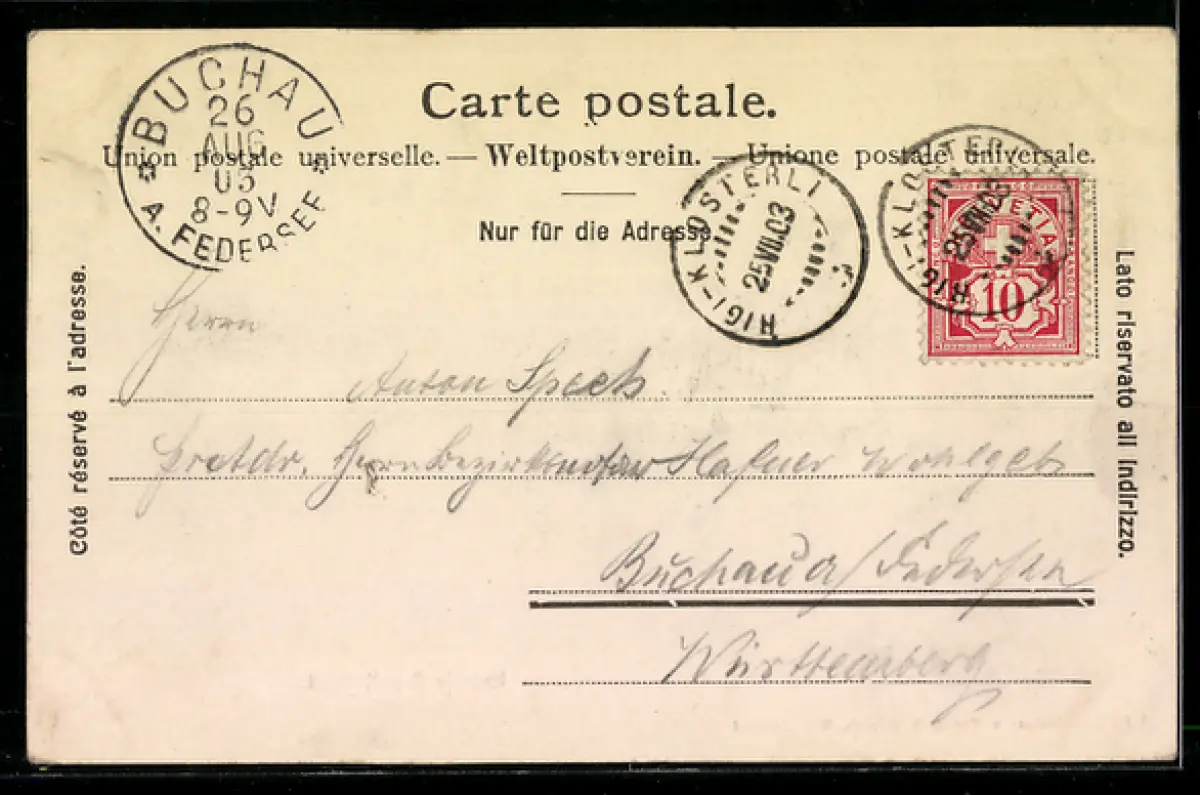 Carte postale.
Union postale universelle. — Weltpostverein. — Unione postale universale.
Nur für die Adresse.
BUCHAU
26
AUG
03
8-9V
A. FEDERSEE
RIGI-KLÖSTERLI
25.VIII.03
RIGI-KLÖSTERLI
25.VIII.03
HELVETIA
10
Côté réservé à l'adresse.
Lato riservato all indirizzo.
Herrn
Anton Specth
Herrn Bezirksnotar Hafner Wohlgeb
Buchau a/Federsee
Württemberg